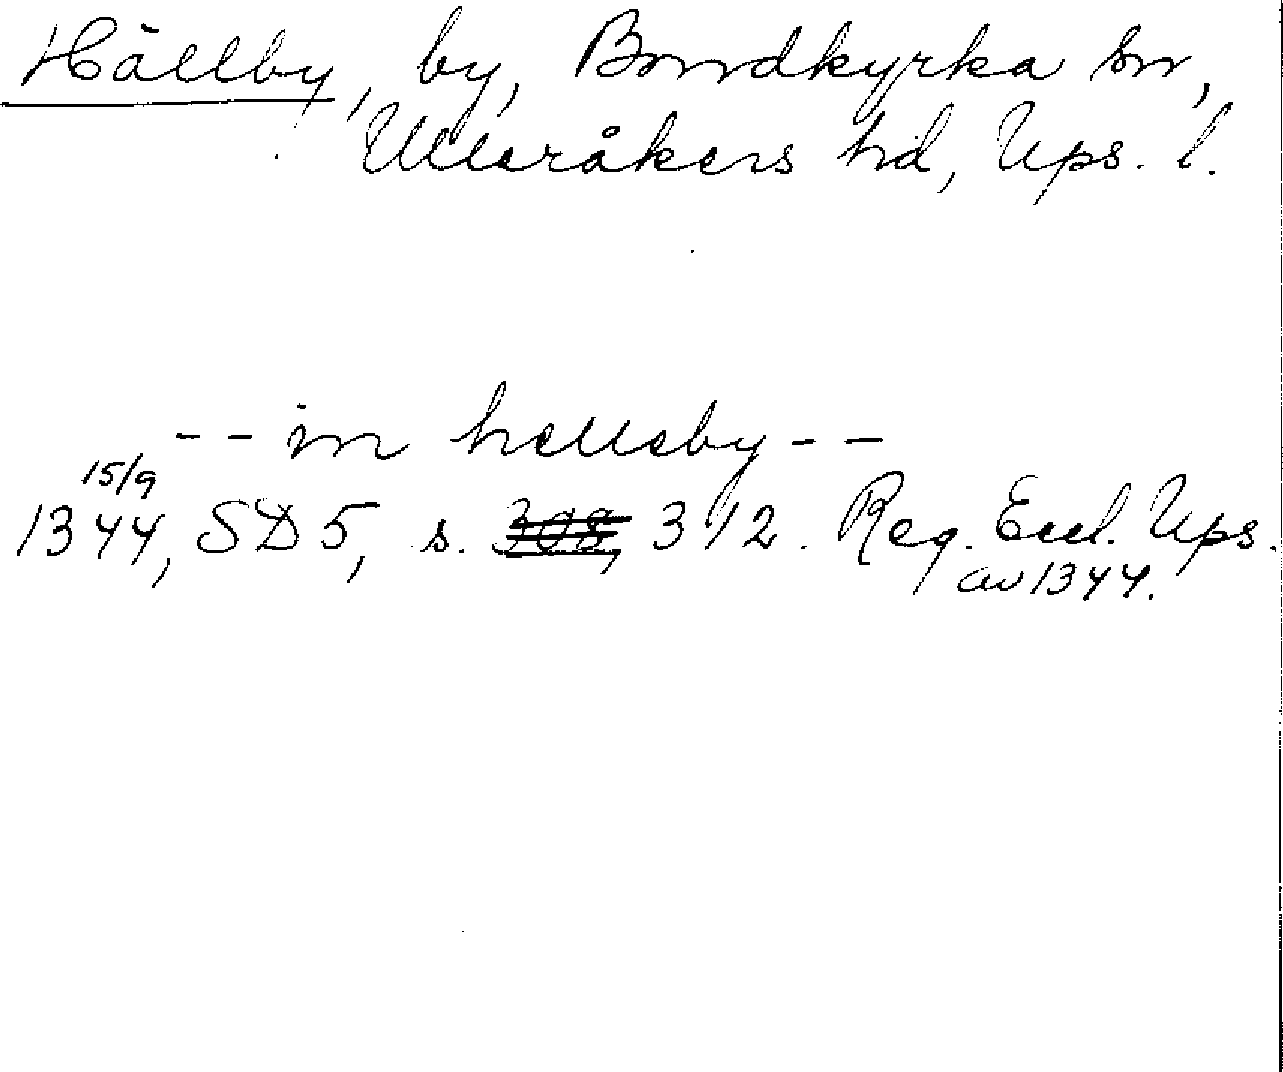 Hällby, by, Bondkyrka sn,
Ulleråkers hd, Ups. l.
-- in hellseby --
15/9
1344, SD 5, s. 308, 312. Reg. Eccl. Ups.
av 1344.